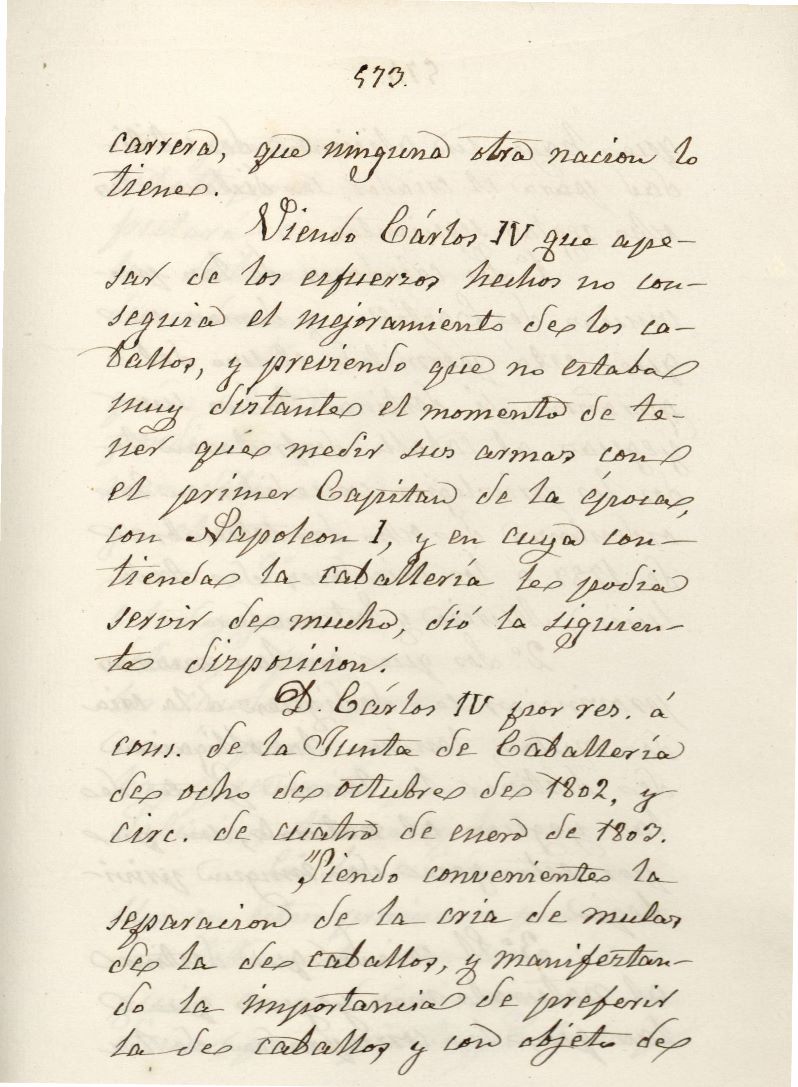 573.
carrera, que ninguna otra nacion lo
tiene.
Viendo Cárlos IV que ape-
sar de los esfuerzos hechos no con-
seguia el mejoramiento de los ca-
ballos, y previendo que no estaba
muy distante el momento de te-
ner que medir sus armas con
el primer Capitan de la época,
con Napoleon 1, y en cuya con-
tienda la caballería le podia
servir de mucho, dió la siguien-
te disposicion.
D. Cárlos IV por res. á
cons. de la Junta de Caballería
de ocho de octubre de 1802, y
circ. de cuatro de enero de 1803.
"Siendo conveniente la
separacion de la cria de mulas
de la de caballos, y manifestan-
do la importancia de preferir
la de caballos y con objeto de